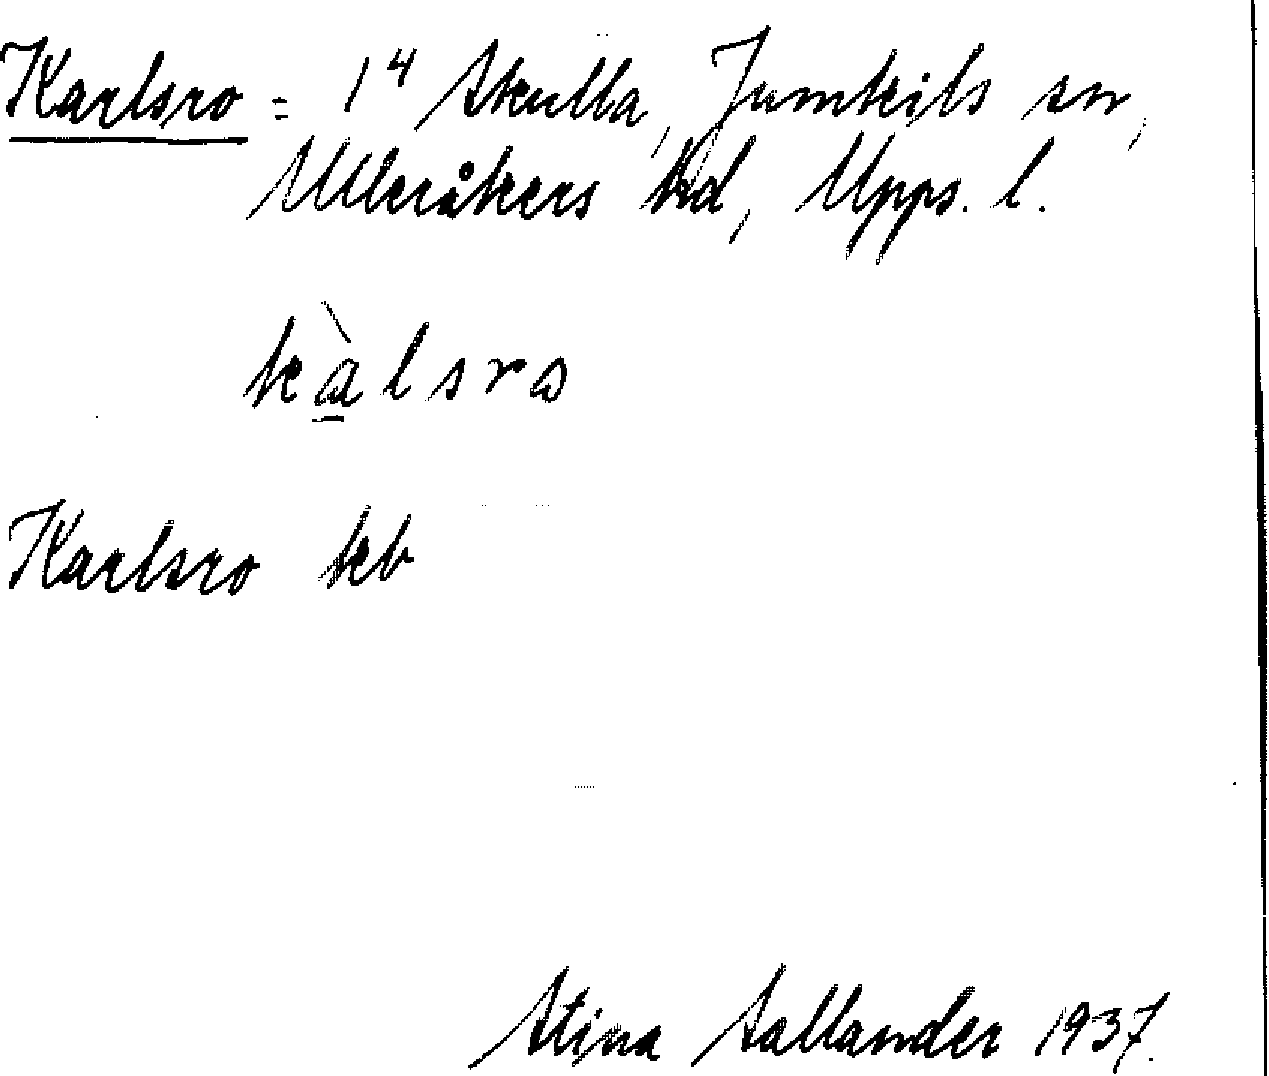 Karlsro = 1⁴ Skulla, Jumkils sn,
Ulleråkers hd, Upps. l.
kàlsrω
Karlsro kb
Stina Sallander 1937.